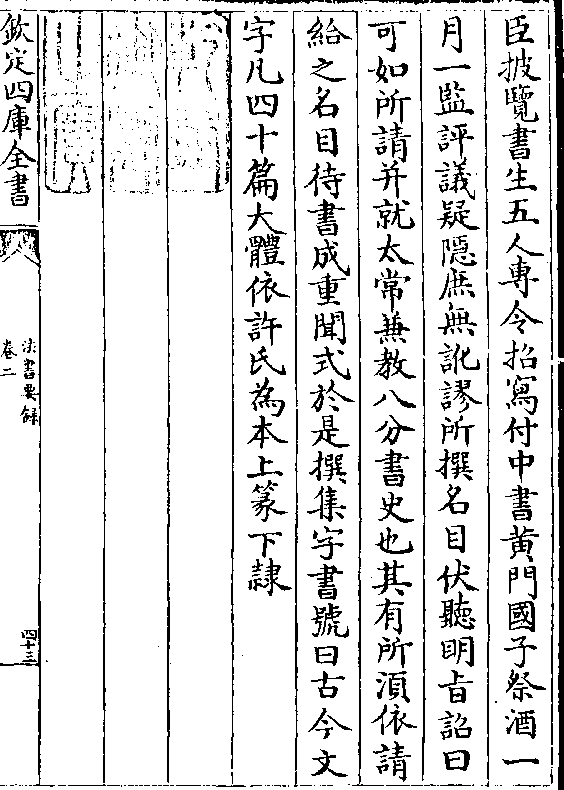 臣披覽書生五人專令招寫付中書黄門國子祭酒一
月一監評議疑隱庶無訛謬所撰名目伏聽明旨詔曰
可如所請并就太常兼教八分書史也其有所湏依請
給之名目待書成重聞式於是撰集字書號曰古今文
字凡四十篇大體依許氏為本上篆下隷
欽定四庫全書
法書要録
卷二
四十三